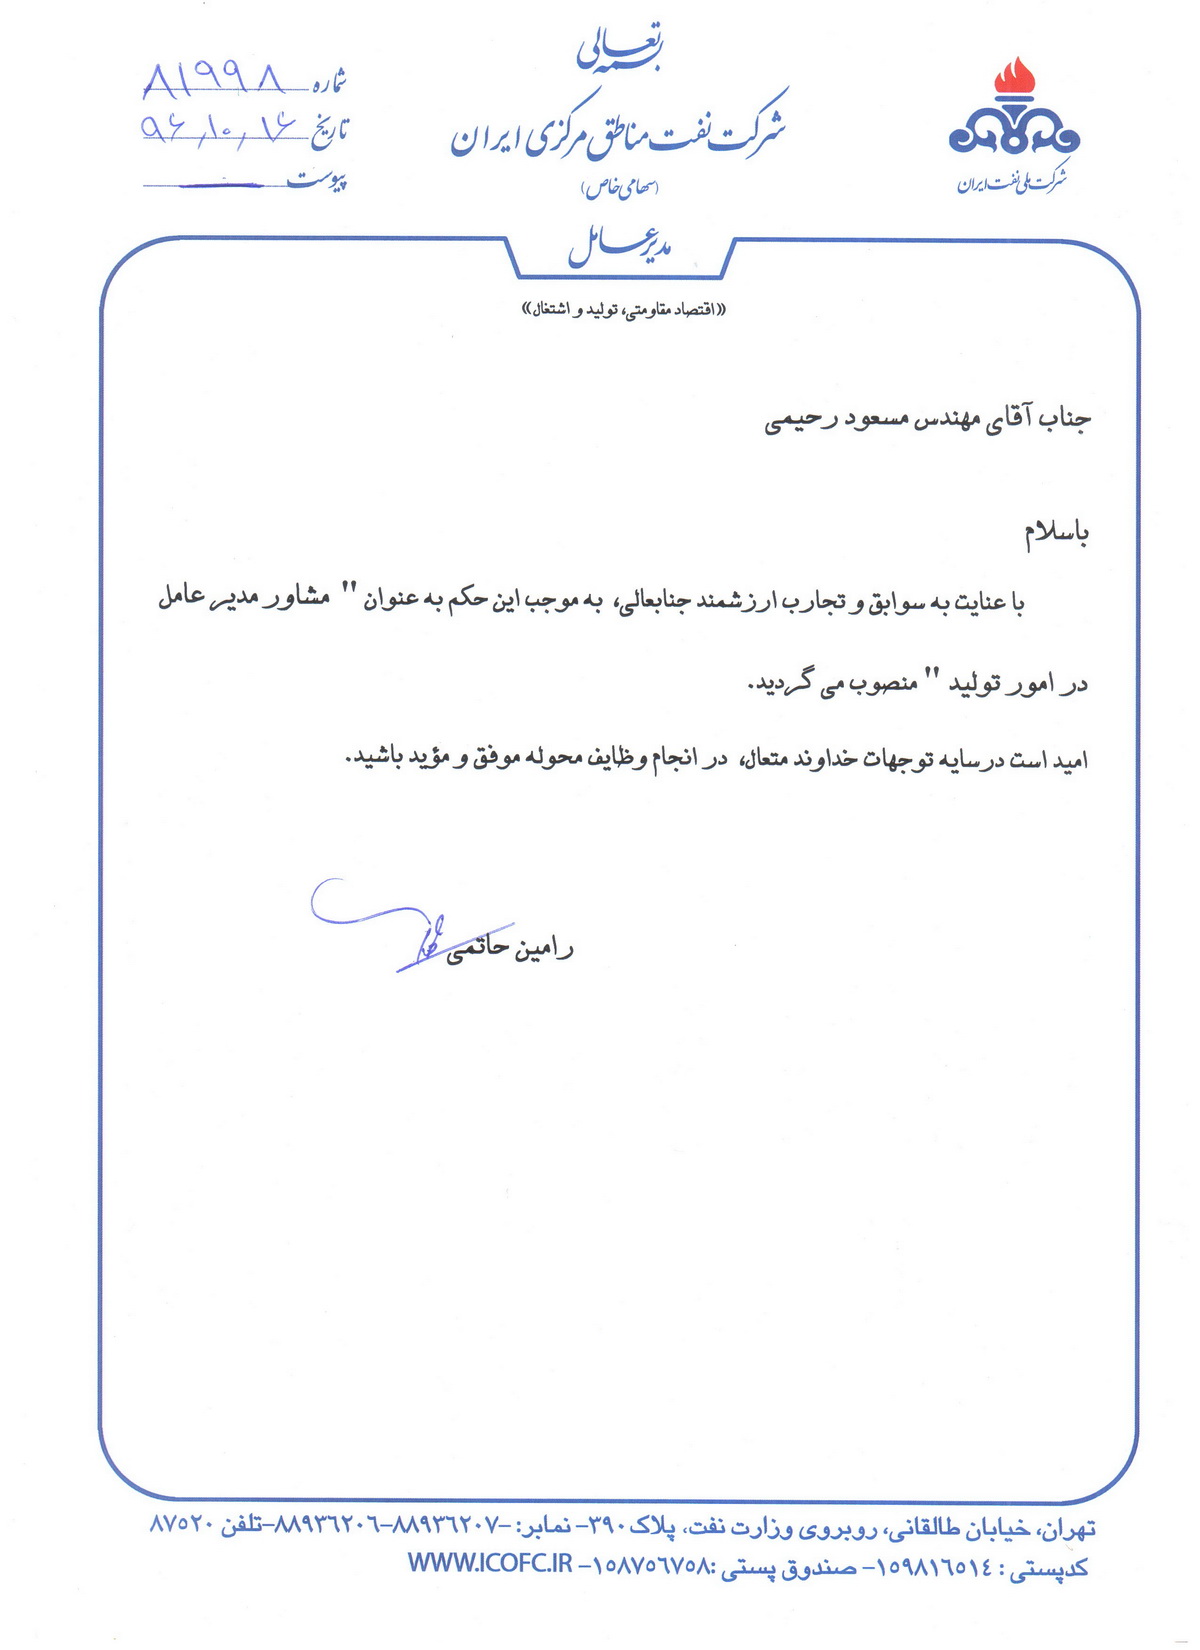 بسمه تعالی
شرکت نفت مناطق مرکزی ایران
(سهامی خاص)
مدیرعامل
شرکت ملی نفت ایران
شماره ۸۱۹۹۸
تاریخ ۹۶,۱۰,۱۶
پیوست
((اقتصاد مقاومتی، تولید و اشتغال))
جناب آقای مهندس مسعود رحیمی
باسلام
با عنایت به سوابق و تجارب ارزشمند جنابعالی، به موجب این حکم به عنوان " مشاور مدیر عامل
در امور تولید " منصوب می گردید.
امید است درسایه توجهات خداوند متعال، در انجام وظایف محوله موفق و مؤید باشید.
رامین حاتمی
تهران، خیابان طالقانی، روبروی وزارت نفت، پلاک ۳۹۰- نمابر: -۸۸۹۳۶۲۰۷-۸۸۹۳۶۲۰۶-تلفن ۸۷۵۲۰
کدپستی : ۱۵۹۸۱۶۵۱۴- صندوق پستی :۱۵۸۷۵۶۷۵۸- WWW.ICOFC.IR